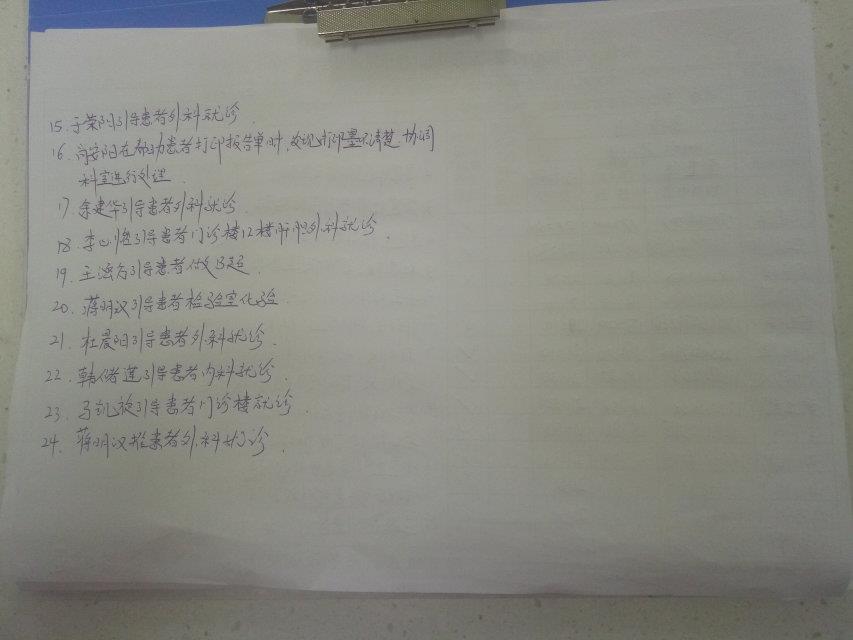 15. 于荣阳引导患者外科就诊.
16. 向安阳在帮助患者打印报告单时,发现打印墨不清楚.协调
科室进行处理.
17. 余建华引导患者外科就诊.
18. 李 引导患者门诊楼12楼 外科就诊.
19. 王 引导患者做B超.
20. 蒋明汉引导患者检验室化验.
21. 杜晨阳引导患者外科就诊.
22. 韩 莲引导患者内科就诊.
23. 马凯旋引导患者门诊楼就诊.
24. 蒋明汉推患者外科就诊.